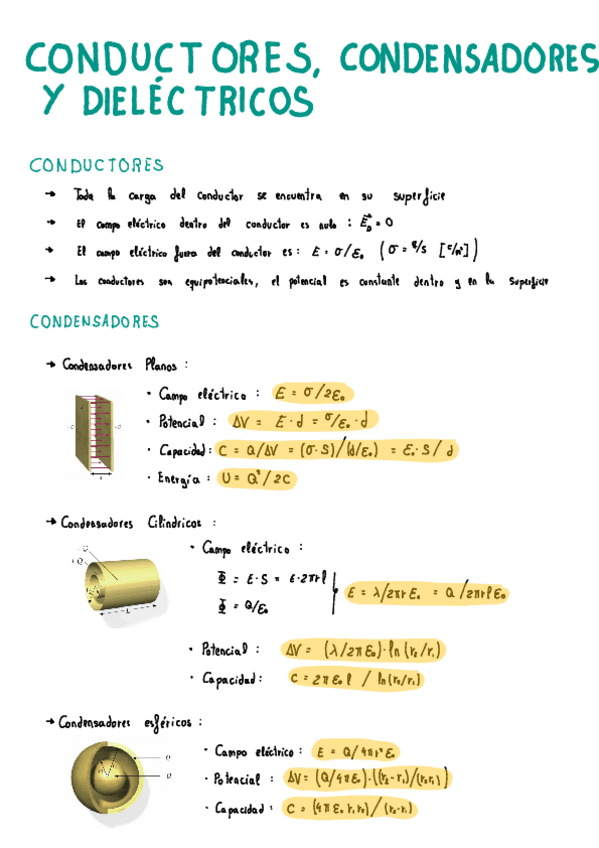 CONDUCTORES, CONDENSADORES
Y DIELÉCTRICOS
CONDUCTORES
→ Toda la carga del conductor se encuentra en su superficie
→ El campo eléctrico dentro del conductor es nulo : E = 0
→ El campo eléctrico fuera del conductor es : E = σ/ε₀ (σ = Q/S [C/m²])
→ Los conductores son equipotenciales, el potencial es constante dentro y en la superficie
CONDENSADORES
→ Condensadores Planos :
· Campo eléctrico : E = σ/2ε₀
· Potencial : ΔV = E · d = σ/ε₀ · d
· Capacidad : C = Q/ΔV = (σ·S)/(d/ε₀) = ε₀·S/d
· Energía : U = Q²/2C
→ Condensadores Cilíndricos :
· Campo eléctrico :
Φ = E·S = E·2πrl
Φ = Q/ε₀
E = λ/2πrε₀ = Q/2πrlε₀
- Q
+ Q
L
· Potencial : ΔV = (λ/2πε₀)·ln(r₂/r₁)
· Capacidad : C = 2πε₀l / ln(r₂/r₁)
→ Condensadores esféricos :
· Campo eléctrico : E = Q/4πr²ε₀
· Potencial : ΔV = (Q/4πε₀)·((r₂-r₁)/(r₂r₁)
· Capacidad : C = (4πε₀r₁r₂)/(r₂-r₁)